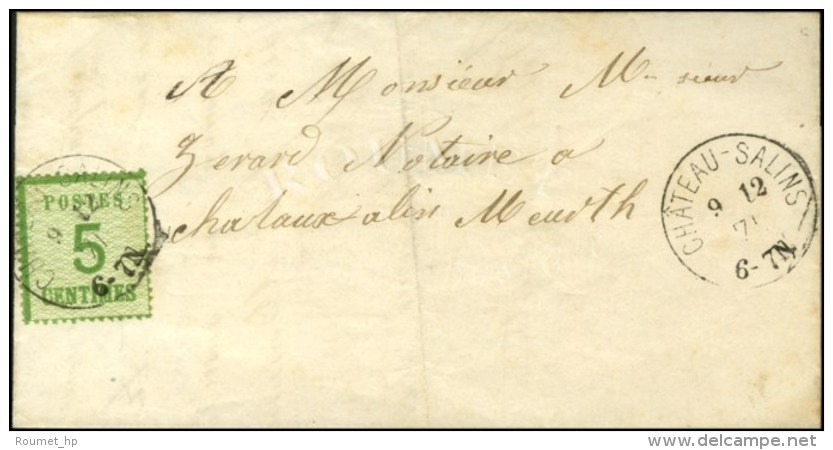 A Monsieur Monsieur
Zerard Notaire a
chataux Salin Meurth
POSTES
5
CENTIMES
6-7N
CHÂTEAU-SALINS
9 12
71
6-7N
Roumet_hp
www.delcampe.net